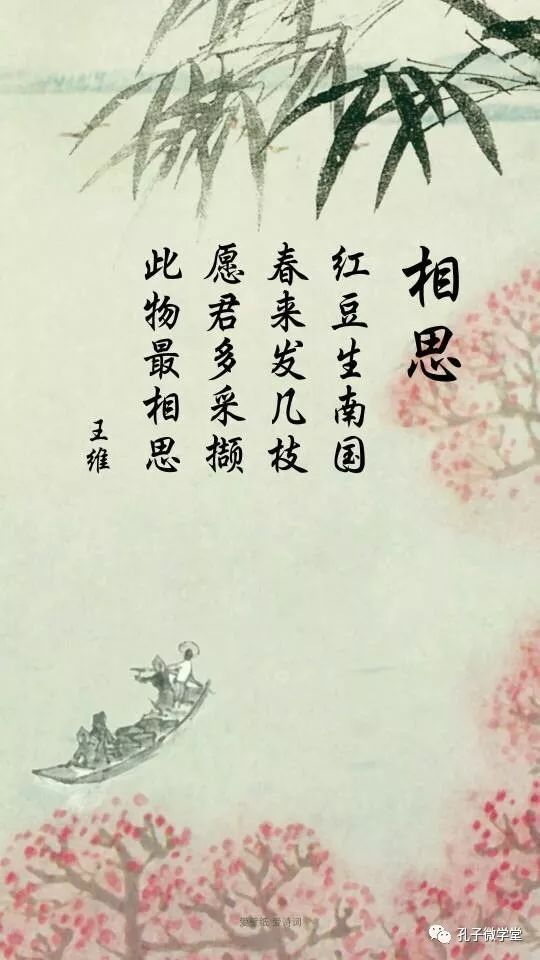 相思
红豆生南国
春来发几枝
愿君多采撷
此物最相思
王维
爱壁纸 爱诗词
孔子微学堂